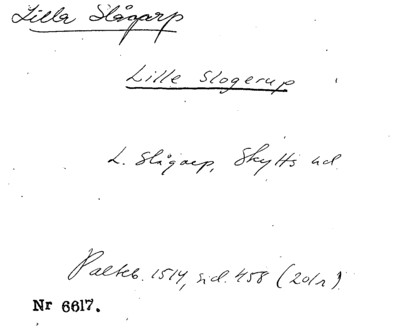 Lilla Slågarp
Lille Slogerup
L. Slågarp, Skytts hd
Palteb. 1514, sid. 458 (201r)
Nr 6617.